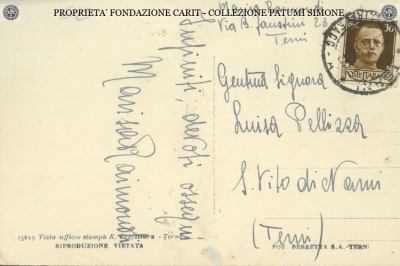 PROPRIETA' FONDAZIONE CARIT - COLLEZIONE PATUMI SIMONE
Via B. Faustini 23
Terni
30
POSTE ITALIANE
Gentma Signora
Luisa Pellizza
S. Vito di Narni
(Terni)
Infiniti, devoti ossequi
Marisa Raimondi
15619 Visto ufficio stampa R. Prefettura - Terni
RIPRODUZIONE VIETATA
FOT. BERRETTA S.A. - TERNI